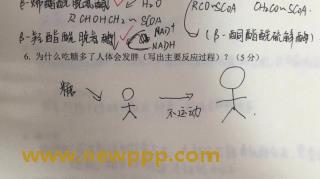 β-烯酰酶 脱氢酶 H₂O RCOSCoA CH₃CO~SCoA
RCHOHCH₂CO~SCoA
β-羟酯酰脱氢酶 NAD⁺ (β-酮酯酰硫解酶)
NADH
6. 为什么吃糖多了人体会发胖（写出主要反应过程）？（5 分）
糖
不运动
www.newppp.com